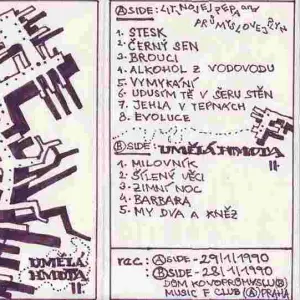 Ⓐ SIDE: LIT. NOJEJ PEPA and
PRŮMYSLOVEJ PLYN
1. STESK
2. ČERNÝ SEN
3. BROUCI
4. ALKOHOL Z VODOVODU
5. VYMYKÁNÍ
6. UDUSÍM TĚ V ŠERU STĚN
7. JEHLA V TEPNÁCH
8. EVOLUCE
Ⓑ SIDE: UMĚLÁ HMOTA
II
1. MILOVNÍK
2. ŠÍLENÝ VĚCI
3. ZIMNÍ NOC
4. BARBARA
5. MY DVA A KNĚZ
UMĚLÁ
HMOTA
II
rec: Ⓐ SIDE - 29/1/1990
: Ⓑ SIDE - 28/1/1990
DŮM KOVOPRŮMYSLU Ⓑ
MUSIC F CLUB Ⓐ PRAHA